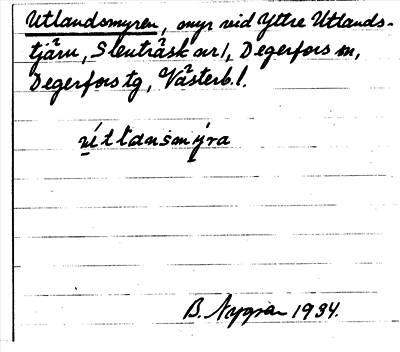 Utlandsmyren, myr vid Yttre Utlands-
tjärn, Slenträsk by, Degerfors sn,
Degerfors tg, Västerb. l.
B. Nygren 1934.